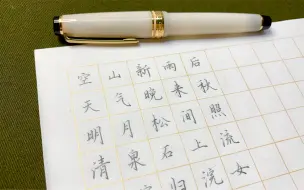 空山新雨后
天气晚来秋
明月松间照
清泉石上流
归浣女